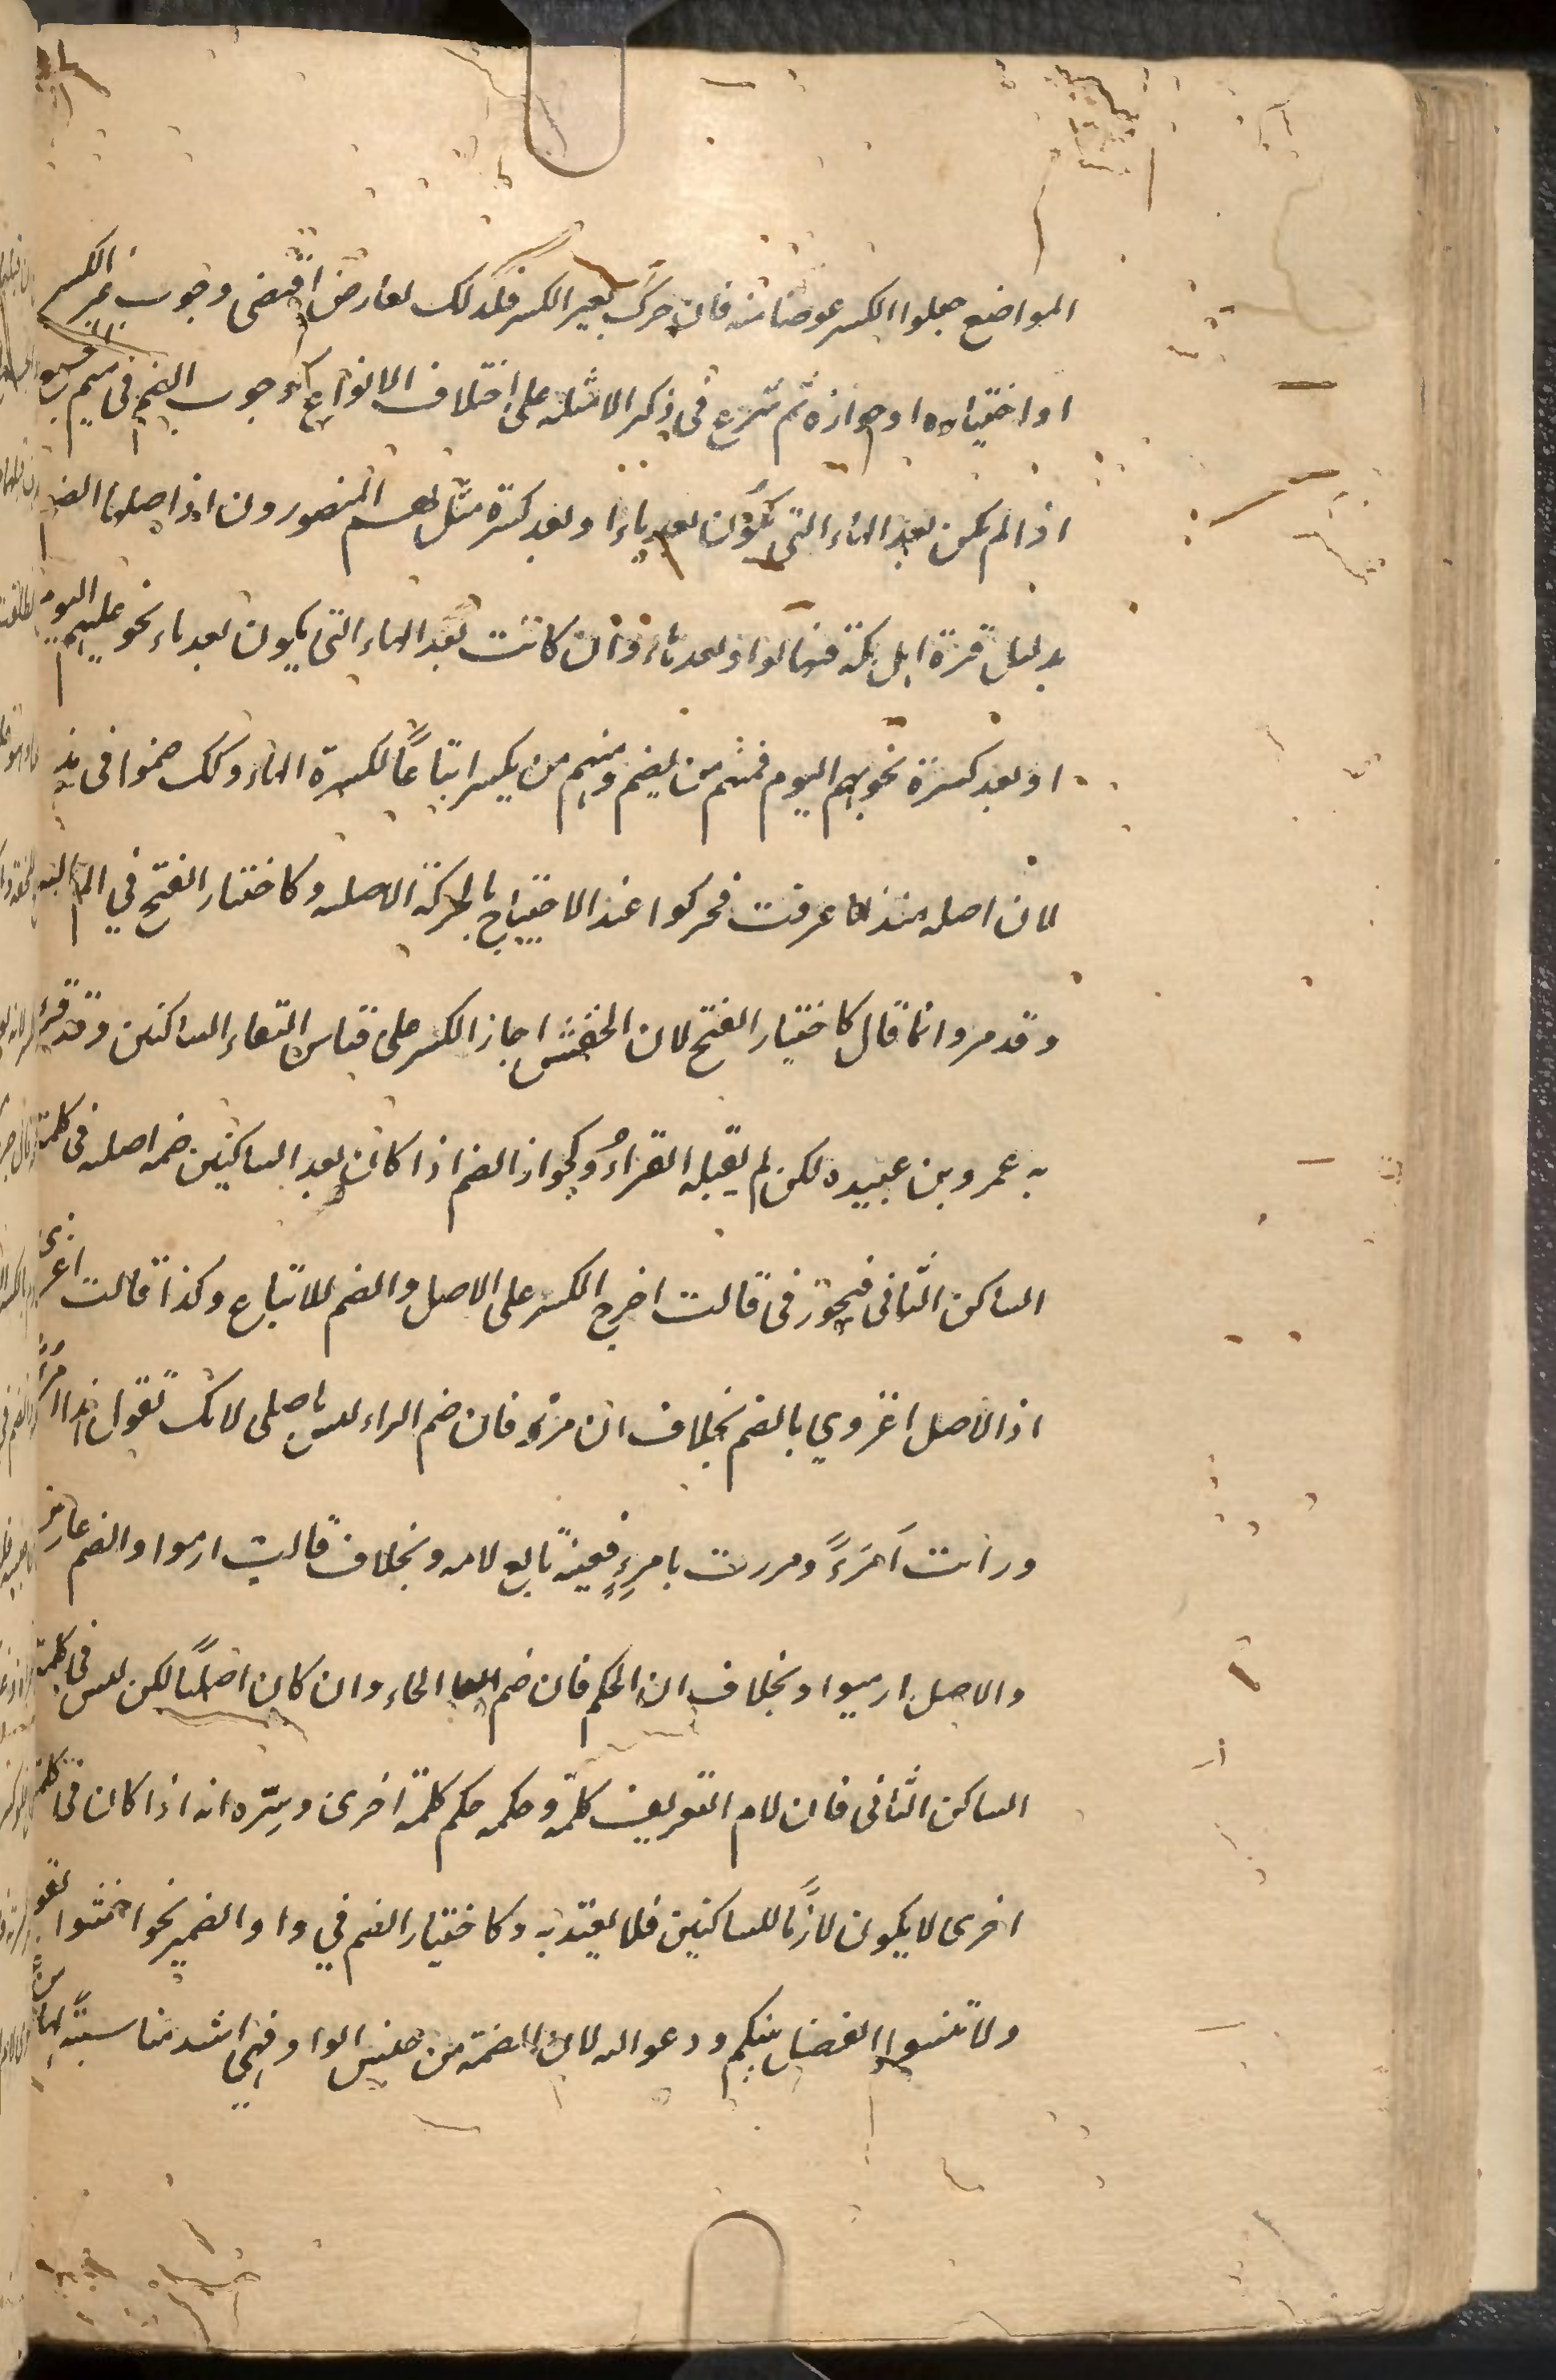 المواضع جعلوا الكسر عوضا منه فان حرك بغير الكسر فلذلك لعارض اقتضى وجوب غير الكسر
او اختياره او جوازه ثم شرع فى ذكر الامثله على اختلاف الانواع كوجوب الضم فى ميم
اذا لم يكن بعد الهاء التى تكون بعد ياء او بعد كسرة مثل لهم المنصورون اذ اصلها الضم
بدليل قرة اهل مكة وان كانت بعد الهاء التى يكون بعد ياء نحو عليهم اليوم
او بعد كسرة نحو بهم اليوم فمنهم من يضم ومنهم من يكسر اتباعًا لكسرة الهاء وكك ضموا فى مذ
لان اصله منذ كما عرفت فحركوا عند الاحتياج بالحركة الاصليه وكاختيار الفتح في الم الله
وقد مر وانما قال كاختيار الفتح لان الخفش اجاز الكسر على قياس التقاء الساكنين وقد قرئ
به عمرو بن عبيده لكن لم يقبله القراءُ وكجواز الضم اذا كان بعد الساكنين ضمه اصليه فى كلمة
الساكن الثانى فيجوز فى قالت اخرج الكسر على الاصل والضم للاتباع وكذا قالت اغزى
اذ الاصل اغزوي بالضم بخلاف ان مرؤ فان ضم الراء ليس باصلى لانك تقول هذا امرأ
ورأيت آمرءً ومررت بامرءٍ فعينه تابع لامه وبخلاف قالت ارموا والضم عارض
والاصل ارميوا وبخلاف ان الحكم فان ضم الحاء وان كان اصليًا لكن ليس فى كلمة
الساكن الثانى فان لام التعريف كلمة وحكمه حكم كلمة اخرى وسِرّه انه اذا كان فى كلمة
اخرى لا يكون لازمًا للساكنين فلا يعتد به وكاختيار الضم في واو الضمير نحو اخشوا
ولا تنسوا الفضل بينكم ودعوا الله لان الضمة من جنس الواو فهي اشد مناسبة لها